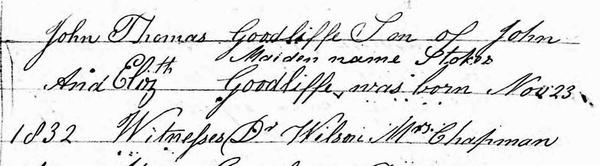 John Thomas Goodliffe Son of John
Maiden name Stokes
And Elizth Goodliffe, was born Nov 23
1832 Witnesses Dr Wilson Mrs Chapman